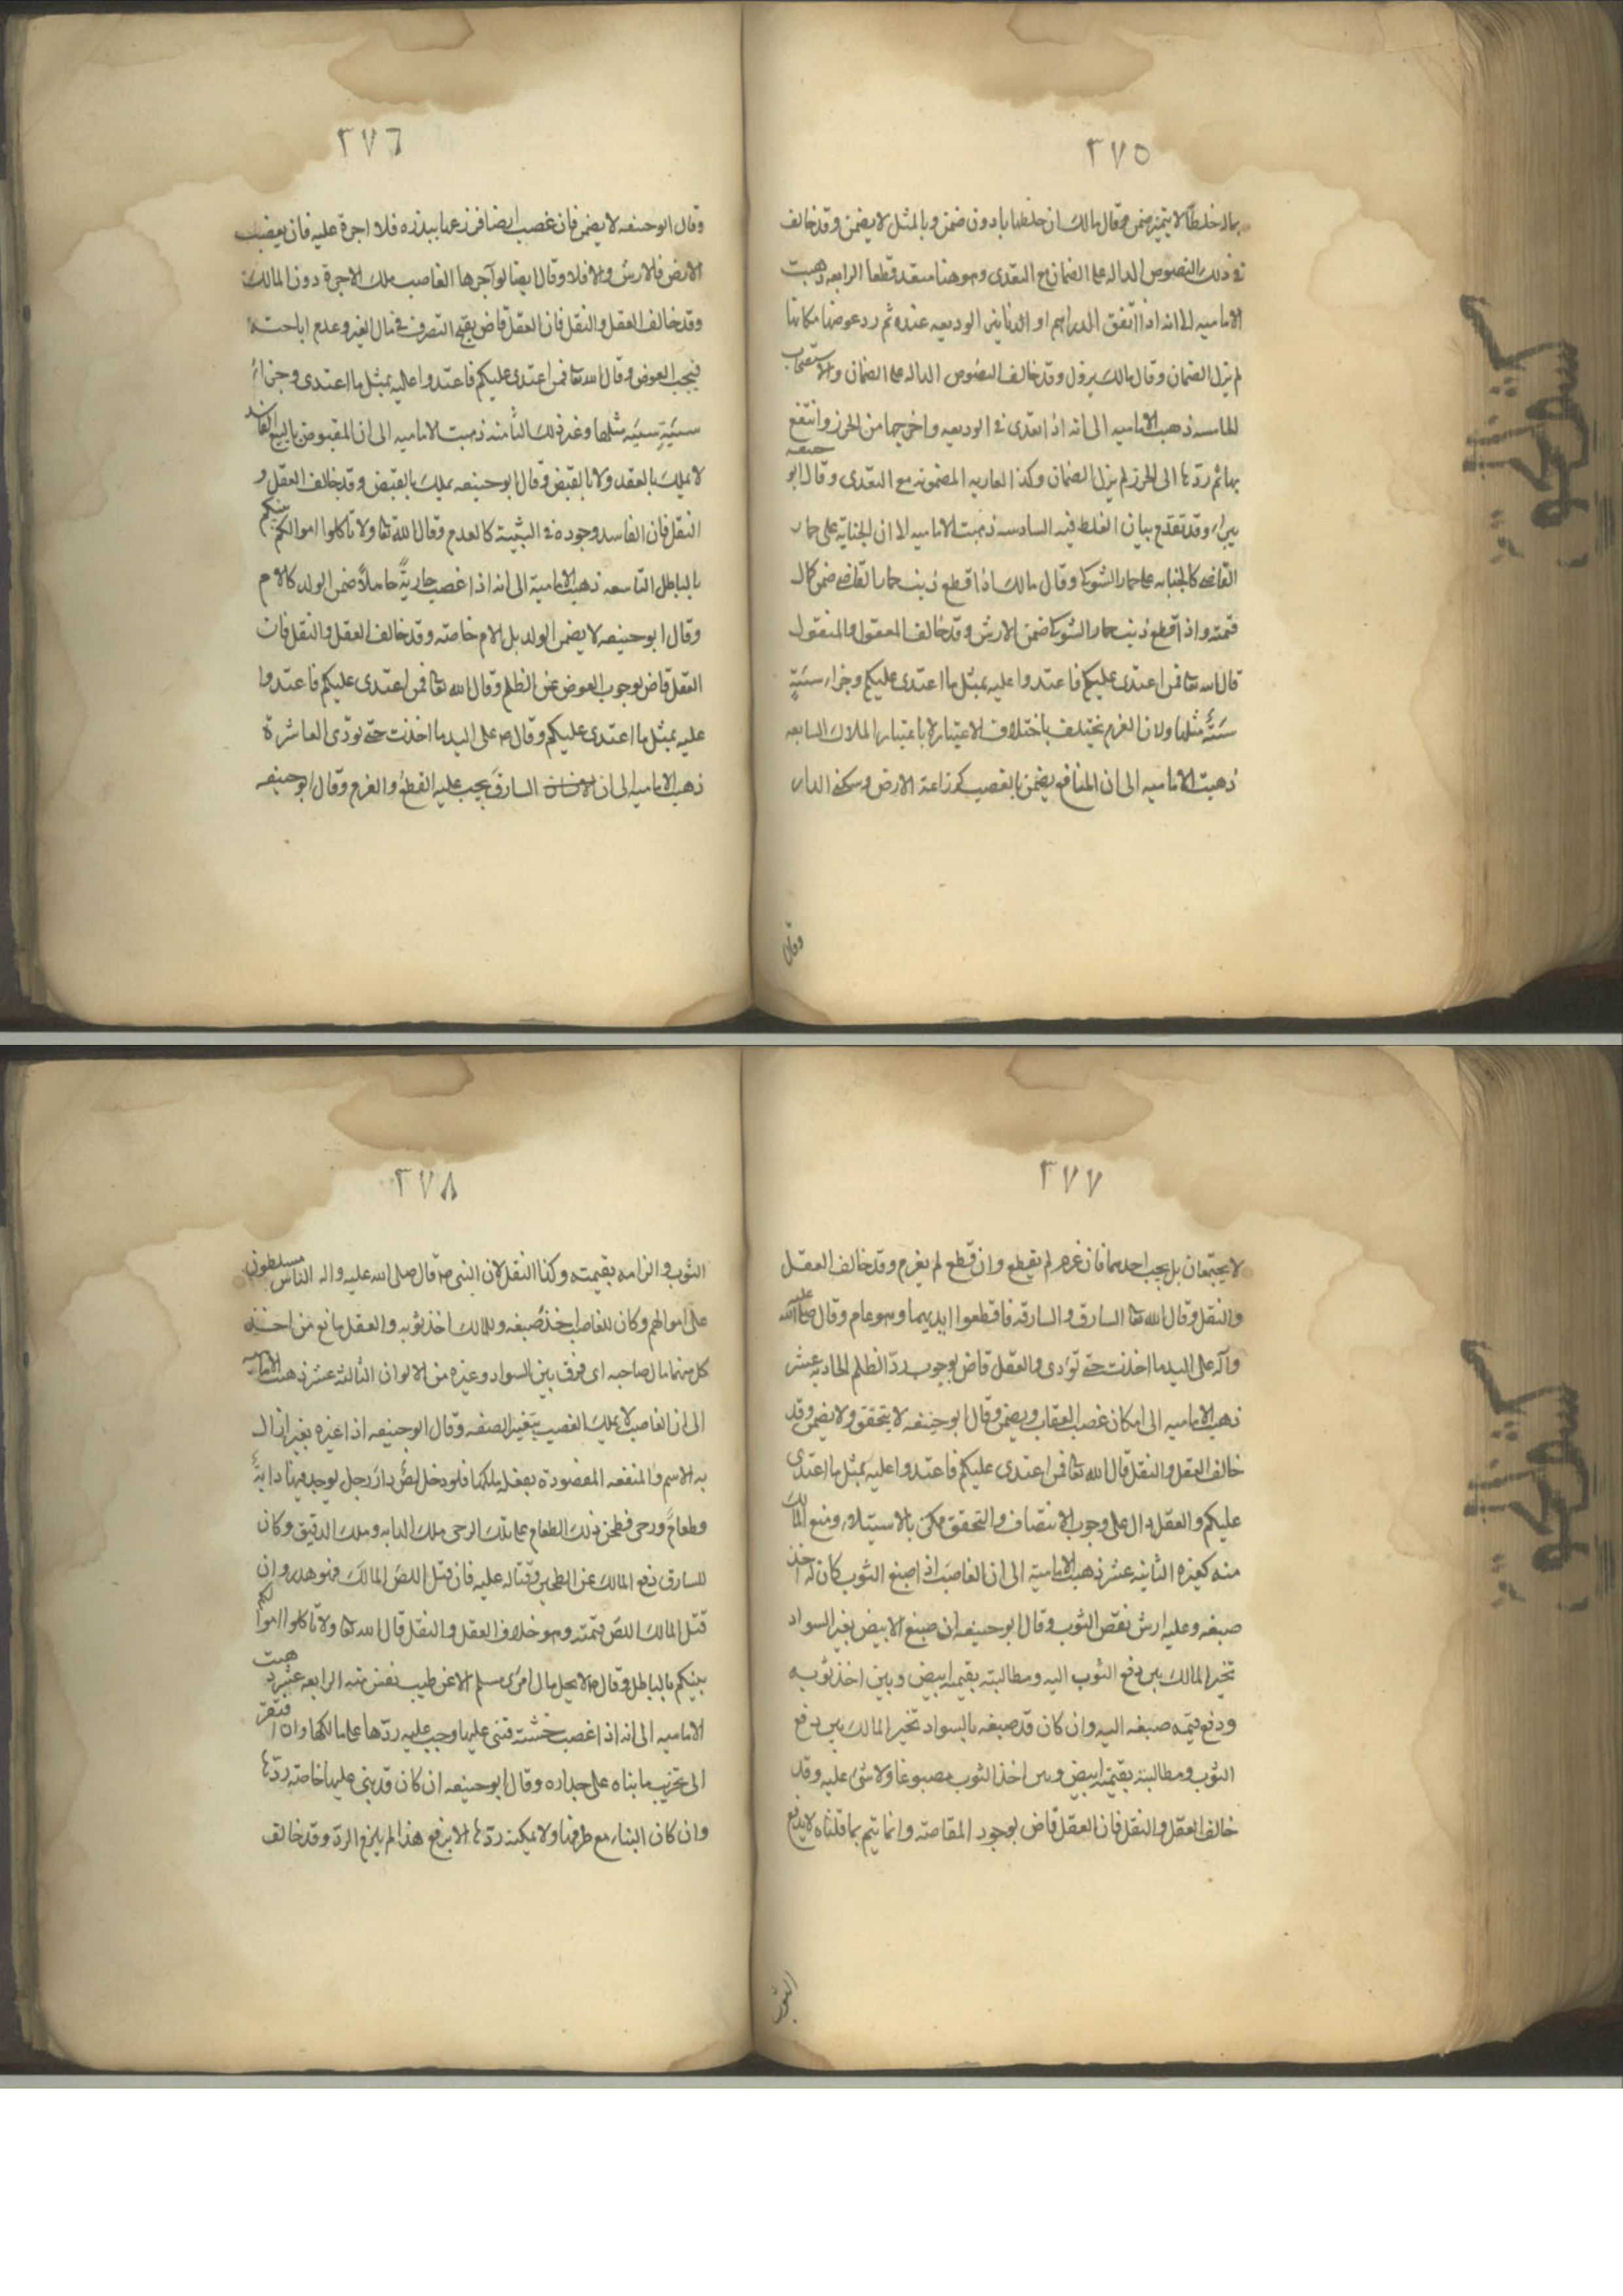 ٣٧٥
بماله خلطا لا يتميز ضمن وقال مالك ان خلطها بادون ضمن وبالمثل لا يضمن وقد خالف
في ذلك النصوص الداله على الضمان مع التعدى وهو هنا متعد قطعا الرابعه ذهبت
الاماميه الى انه اذا انفق الدراهم او الدنانير الوديعه عنده ثم رد عوضها مكانها
لم يزل الضمان وقال مالك يزول وقد خالف النصوص الداله على الضمان والاستصحاب
الخامسه ذهبت الاماميه الى انه اذا تعدى في الوديعه واخرجها من الحرز وانتفع
بها ثم ردّها الى الحرز لم يزل الضمان وكذا العاريه المضمونه مع التعدى وقال ابو حنيفه
يبرء وقد تقدم بيان الغلط فيه السادسه ذهبت الاماميه الى ان الجناية على حمار
القاضي كالجنايه على حمار الشوكى وقال مالك اذا قطع ذنب حمار القاضي ضمن كمال
قيمته واذا قطع ذنب حمار الشوكى ضمن الارش وقد خالف المعقول والمنقول
قال الله تعا فمن اعتدى عليكم فاعتدوا عليه بمثل ما اعتدى عليكم وجزاء سيئةٍ
سيئة مثلها ولان الغرم يختلف باختلاف الاعتبار لا باعتبار الملاك السابعه
ذهبت الاماميه الى ان المنافع يضمن بالغصب كزراعة الارض وسكنى الدار
وقال
٣٧٦
وقال ابو حنيفه لا يضمن فان غصب ارضا فزرعها ببذره فلا اجرة عليه فان نقصت
الارض فالارش والا فلا وقال ايضا لو آجرها الغاصب ملك الاجرة دون المالك
وقد خالف العقل والنقل فان العقل قاض بقبح التصرف في مال الغير وعدم اباحته
فيجب العوض وقال الله تعا فمن اعتدى عليكم فاعتدوا عليه بمثل ما اعتدى وجزاء
سيئةٍ سيئه مثلها وغير ذلك الثامنه ذهبت الاماميه الى ان المقبوض بالبيع الفاسد
لا يملك بالعقد ولا بالقبض وقال ابو حنيفه يملك بالقبض وقد خالف العقل و
النقل فان الفاسد وجوده في السببية كالعدم وقال الله تعا ولا تاكلوا اموالكم بينكم
بالباطل التاسعه ذهبت الامامية الى انه اذا غصب جاريةً حاملاً ضمن الولد كالام
وقال ابو حنيفه لا يضمن الولد بل الام خاصته وقد خالف العقل والنقل فان
العقل قاض بوجوب العوض عن الظلم وقال الله تعا فمن اعتدى عليكم فاعتدوا
عليه بمثل ما اعتدى عليكم وقال ص على اليد ما اخذت حتى تودّى العاشرة
ذهبت الاماميه الى ان السارق يجب عليه القطع والغرم وقال ابو حنيفه
٣٧٧
لا يجتمعان بل يجب احدهما فان غرم لم يقطع وان قطع لم يغرم وقد خالف العقل
والنقل وقال الله تعا السارق والسارقه فاقطعوا ايديهما وهو عام وقال صلى الله عليه
وآله على اليد ما اخذت حتى تؤدى والعقل قاض بوجوب ردّ الظلم الحاديه عشر
ذهبت الاماميه الى امكان غصب العقاب ويضمن وقال ابو حنيفه لا يتحقق ولا يضمن وقد
خالف العقل والنقل قال الله تعا فمن اعتدى عليكم فاعتدوا عليه بمثل ما اعتدى
عليكم والعقل دال على وجوب الانتصاف والتحقق ممكن بالاستيلاء ومنع المالك
منه كغيره الثانيه عشر ذهبت الامامية الى ان الغاصب اذا صبغ الثوب كان له اخذ
صبغه وعليه ارش نقص الثوب وقال ابو حنيفه ان صبغ الابيض بغير السواد
تخير المالك بين دفع الثوب اليه ومطالبته بقيمته ابيض وبين اخذ ثوبه
ودفع قيمه صبغه اليه وان كان قد صبغه بالسواد تخير المالك بين دفع
الثوب ومطالبته بقيمته ابيض وبين اخذ الثوب مصبوغا ولا شئ عليه وقد
خالف العقل والنقل فان العقل قاض بوجود المقاصته وانما يتم بما قلناه لا بدفع
الثوب
٣٧٨
الثوب والزامه بقيمته وكذا النقل لان النبي ص قال صلى الله عليه واله الناس مسلطون
على اموالهم وكان للغاصب اخذ صبغه وللمالك اخذ ثوبه والعقل مانع من اخذ
كل منهما مال صاحبه اى فرق بين السواد وغيره من الالوان الثالثة عشر ذهبت الاماميه
الى ان الغاصب لا يملك الغصب بتغير الصفه وقال ابو حنيفه اذا غيره بغير ازال
به الاسم والمنفعه المقصودة بفعله ملكها فلو دخل لصٌّ دار رجل يوجد فيها دابةً
وطعاماً ورحى فطحن ذلك الطعام على تلك الرحى ملك الدابه وملك الدقيق وكان
للسارق دفع المالك عن الطحين وقتاله عليه فان قتل اللصّ المالك فهو هدر وان
قتل المالك اللصّ قيمته وهو خلاف العقل والنقل قال الله تعا ولا تاكلوا اموالكم
بينكم بالباطل وقال ص لا يحل مال امرئ مسلم الا عن طيب نفس منه الرابعه عشر ذهبت
الاماميه الى انه اذا غصب خشبته فبنى عليها وجب عليه ردّها على مالكها وان افتقر
الى تخريب ما بناه على جداره وقال ابو حنيفه ان كان قد بنى عليها خاصته ردّها
وان كان البناء مع طرفها ولا يمكنه ردّها الا برفع هذا لم يلزم الردّ وقد خالف